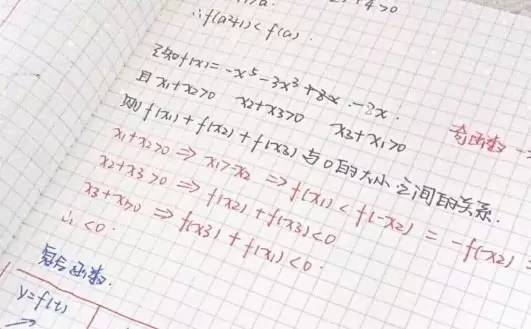 +4>0
∴f(a²+1)<f(a).
已知f(x)=-x⁵-3x³+8x.-2x.
且x₁+x₂>0 x₂+x₃>0 x₃+x₁>0
则f(x₁)+f(x₂)+f(x₃)与0的大小之间的关系.
奇函数
x₁+x₂>0⇒x₁>-x₂⇒f(x₁)<f(-x₂)=-f(x₂)
x₂+x₃>0⇒f(x₂)+f(x₃)<0
x₃+x₁>0⇒f(x₃)+f(x₁)<0.
∴<0.
复合函数.
y=f(t)